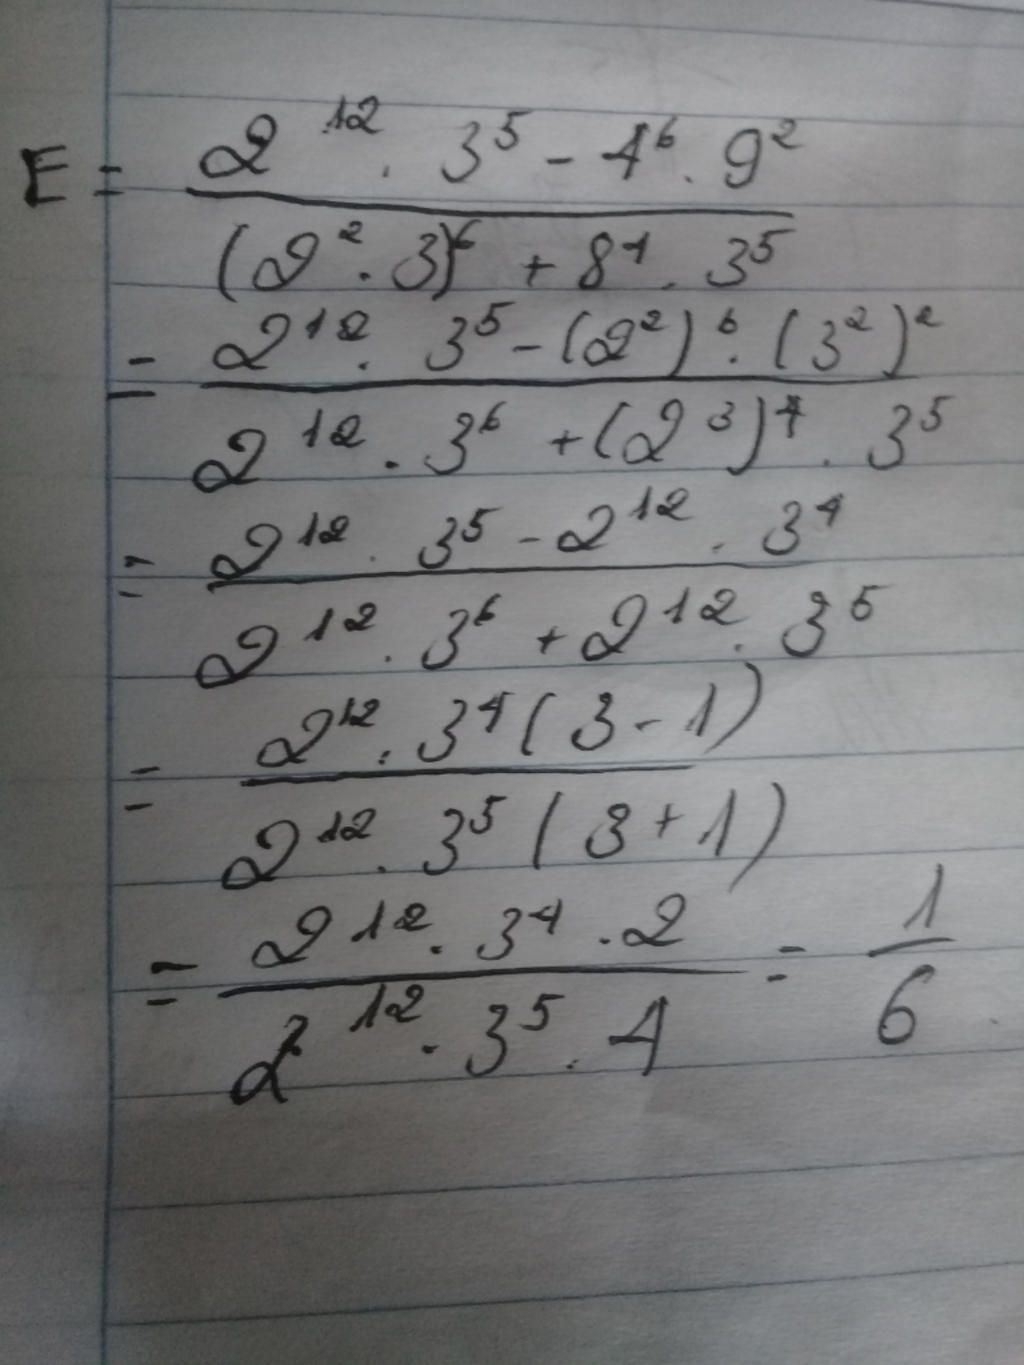 E = \frac{2^{12} . 3^5 - 4^6 . 9^2}{(2^2 . 3)^6 + 8^4 . 3^5}
= \frac{2^{12} . 3^5 - (2^2)^6 . (3^2)^2}{2^{12} . 3^6 + (2^3)^4 . 3^5}
= \frac{2^{12} . 3^5 - 2^{12} . 3^4}{2^{12} . 3^6 + 2^{12} . 3^5}
= \frac{2^{12} . 3^4 (3 - 1)}{2^{12} . 3^5 (3 + 1)}
= \frac{2^{12} . 3^4 . 2}{2^{12} . 3^5 . 4} = \frac{1}{6}